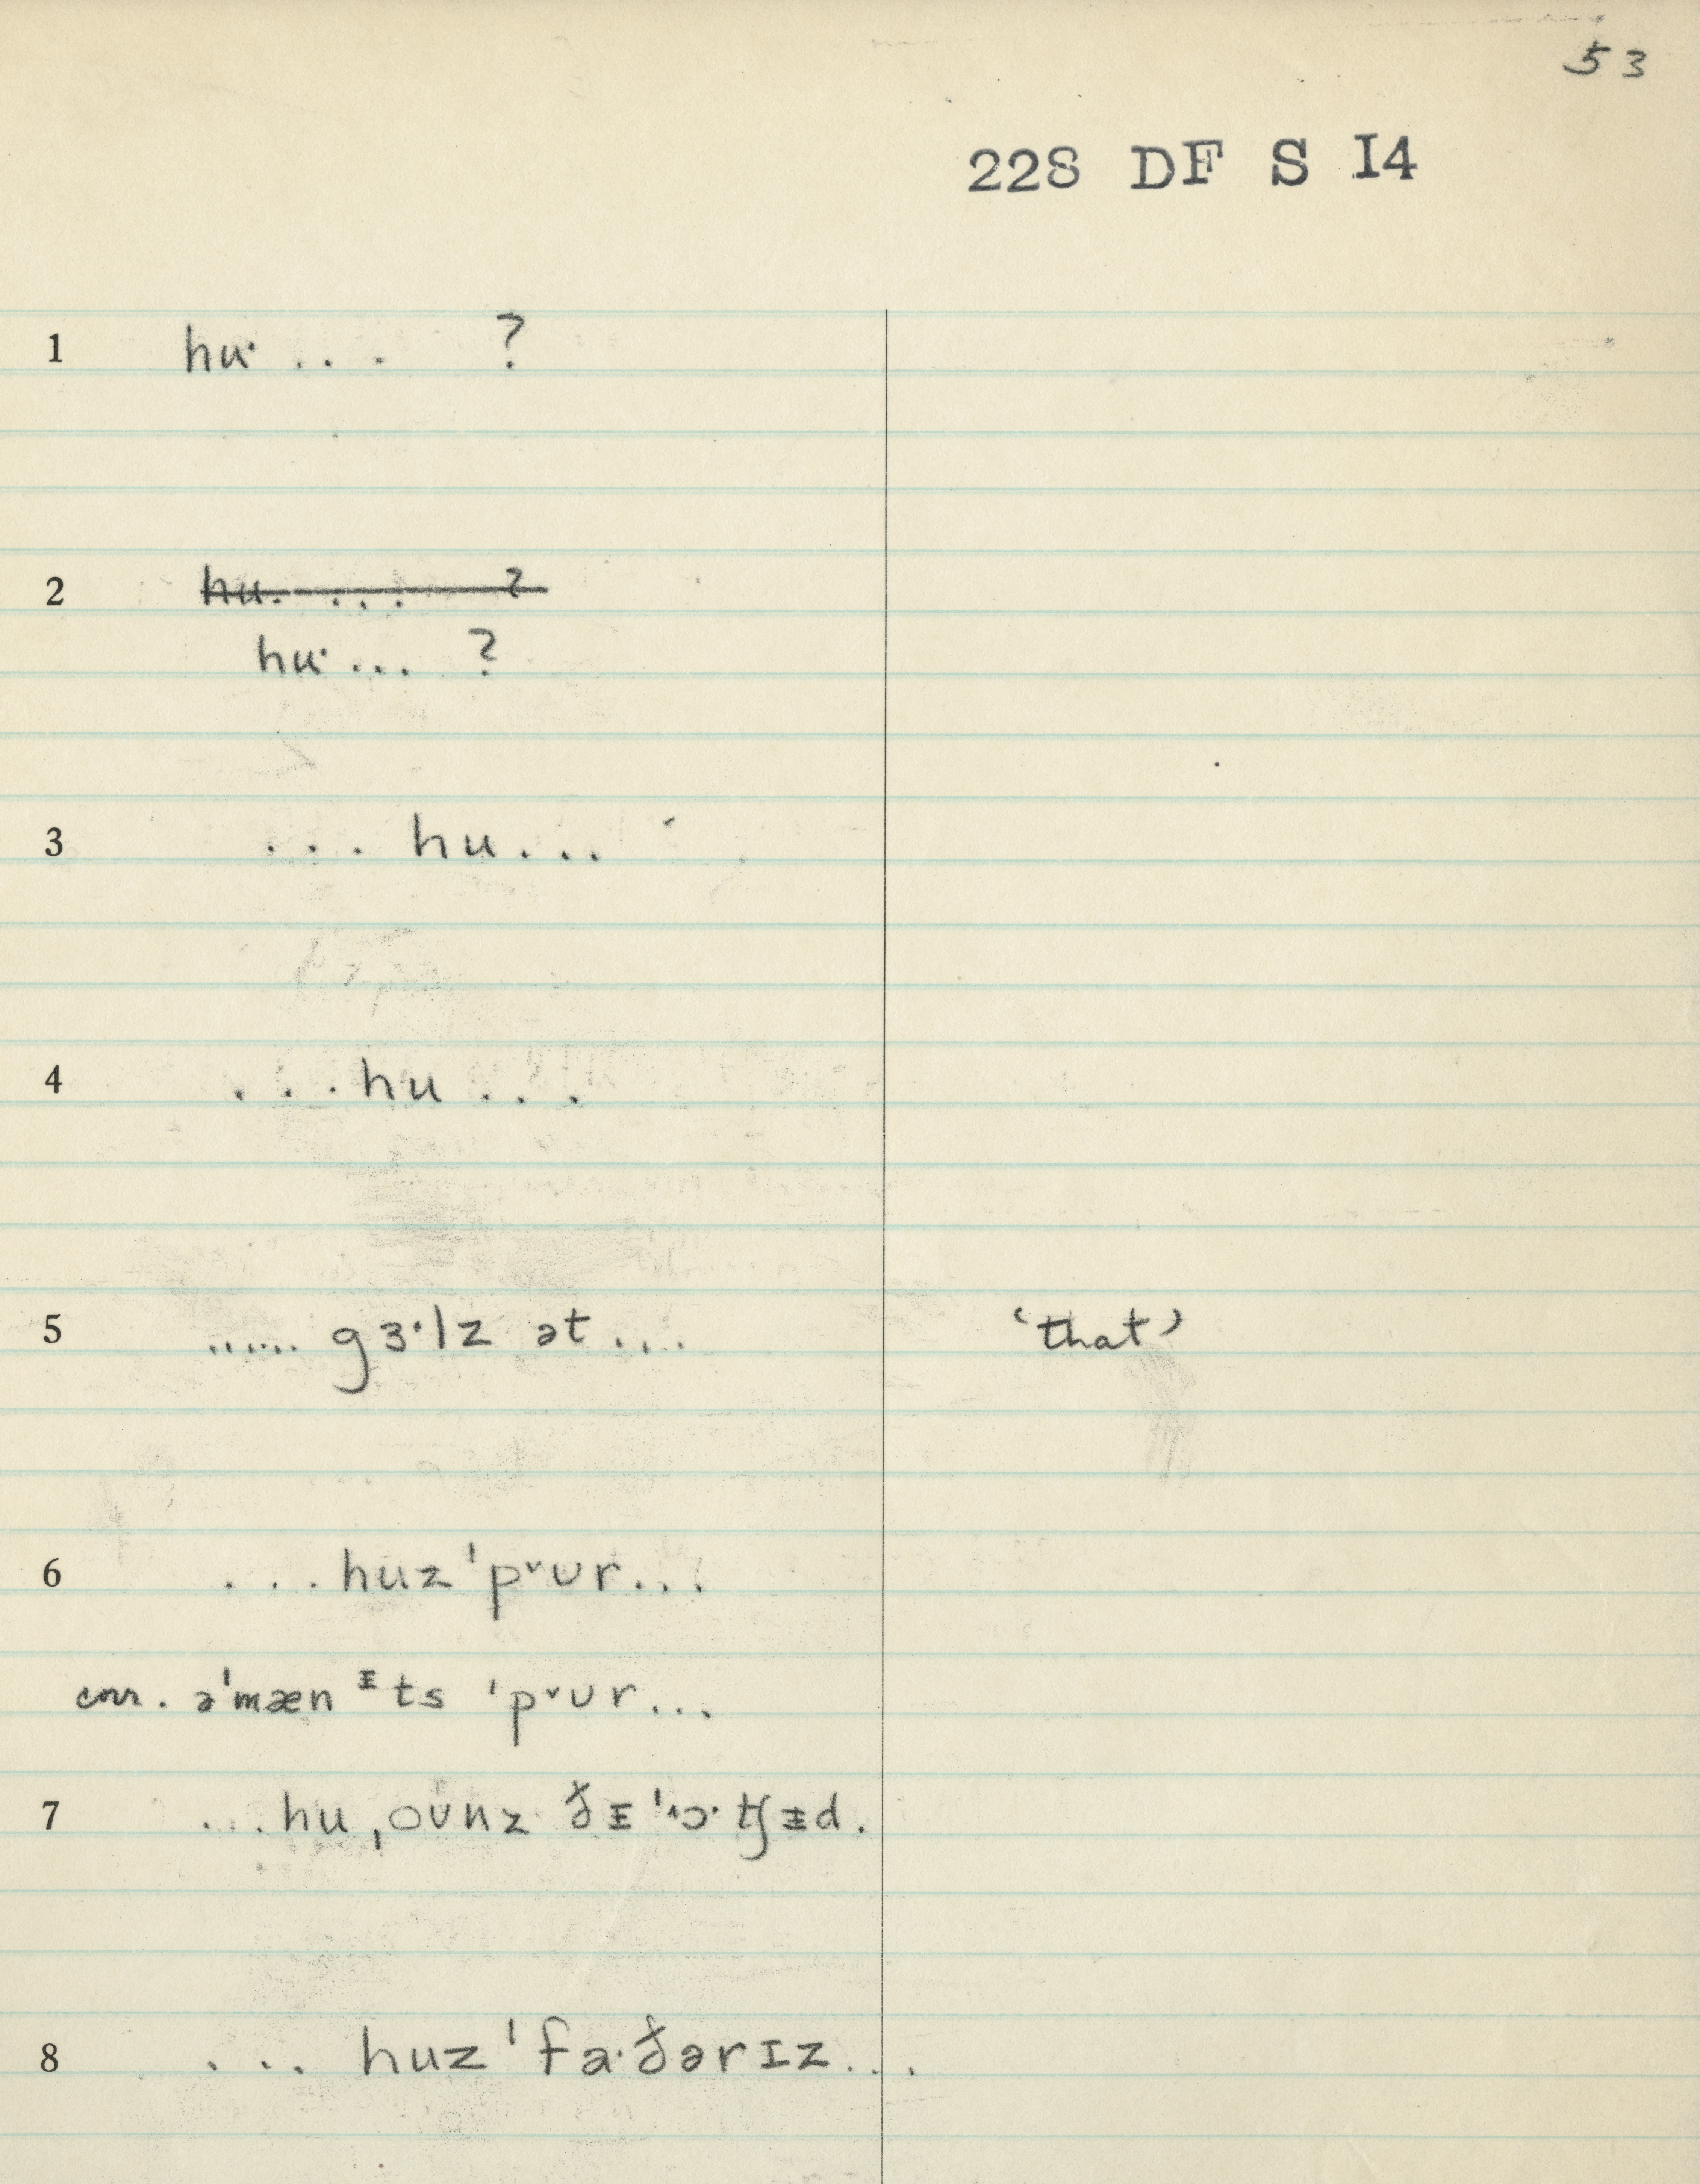 53
228 DF S I4
1 huˑ ... ?
2 hu. ... ?
huˑ ... ?
3 ... hu ...
4 ... hu ...
5 ...... gɜˑlz ət ... ‘that’
6 ... huz ˈpᵛʊr ...
cor. əˈmæn ᵻts ˈpᵛʊr ...
7 ... hu ˌoʊnz ðᵻ ˈ ᵻd.
8 ... huz ˈfaˑðərɪz ...